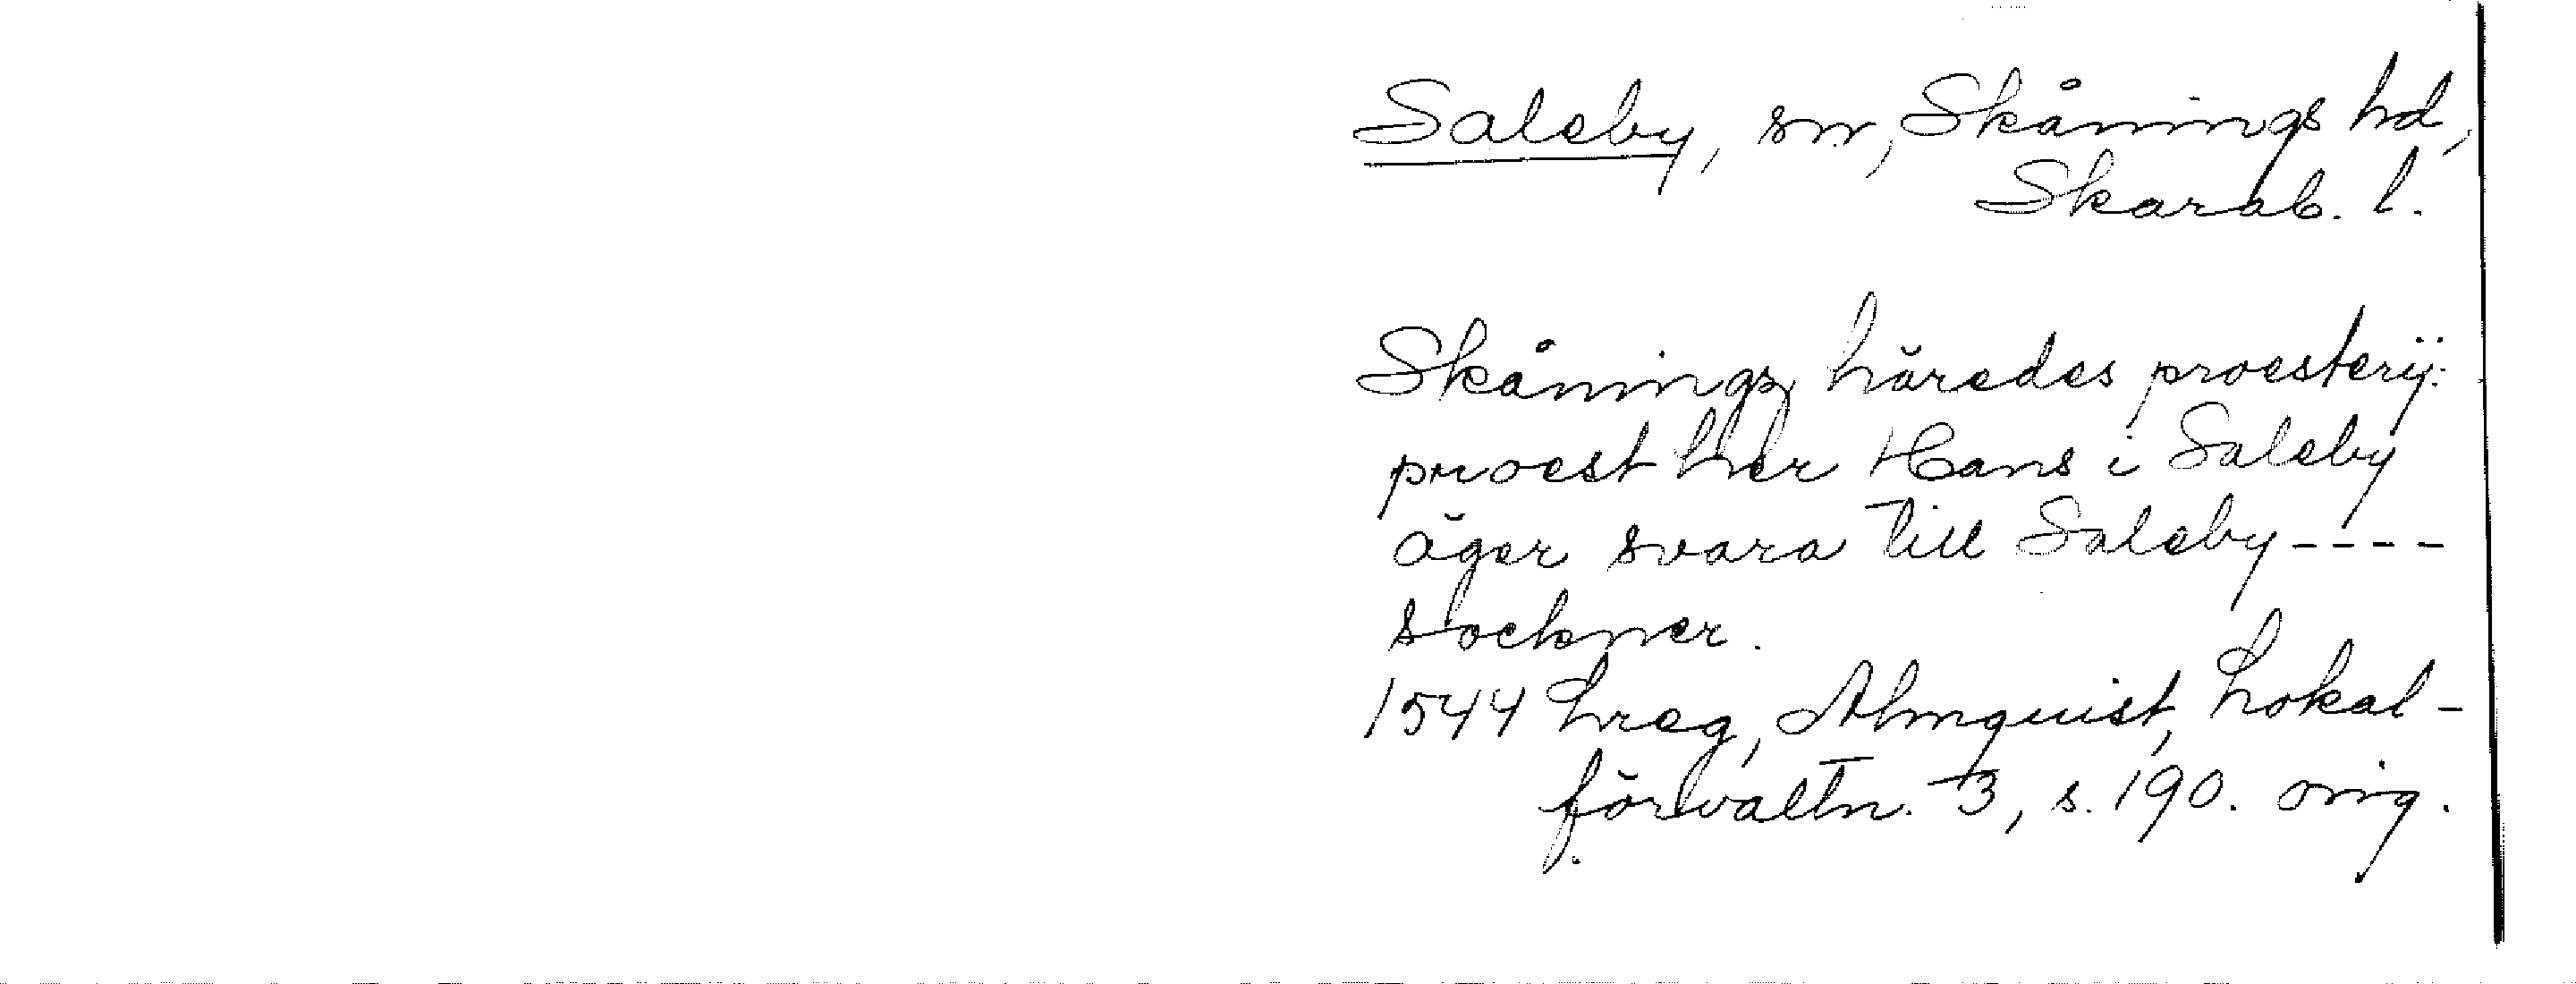 Saleby, sn, Skånings hd,
Skarab. l.
Skåningz häredes proesterÿ:
proest her Hans i Saleby
äger svara till Saleby ----
sockner.
1544 Lreg, Almquist, Lokal-
förvaltn. 3, s. 190. orig.